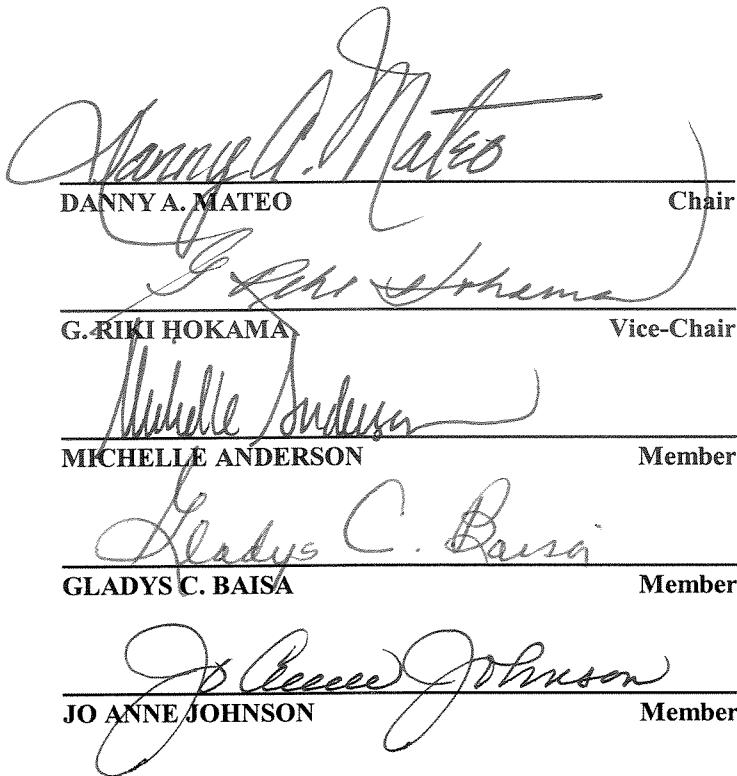 Danny A. Mateo
DANNY A. MATEO Chair
G Riki Hokama
G. RIKI HOKAMA Vice-Chair
Michelle Anderson
MICHELLE ANDERSON Member
Gladys C. Baisa
GLADYS C. BAISA Member
Jo Anne Johnson
JO ANNE JOHNSON Member